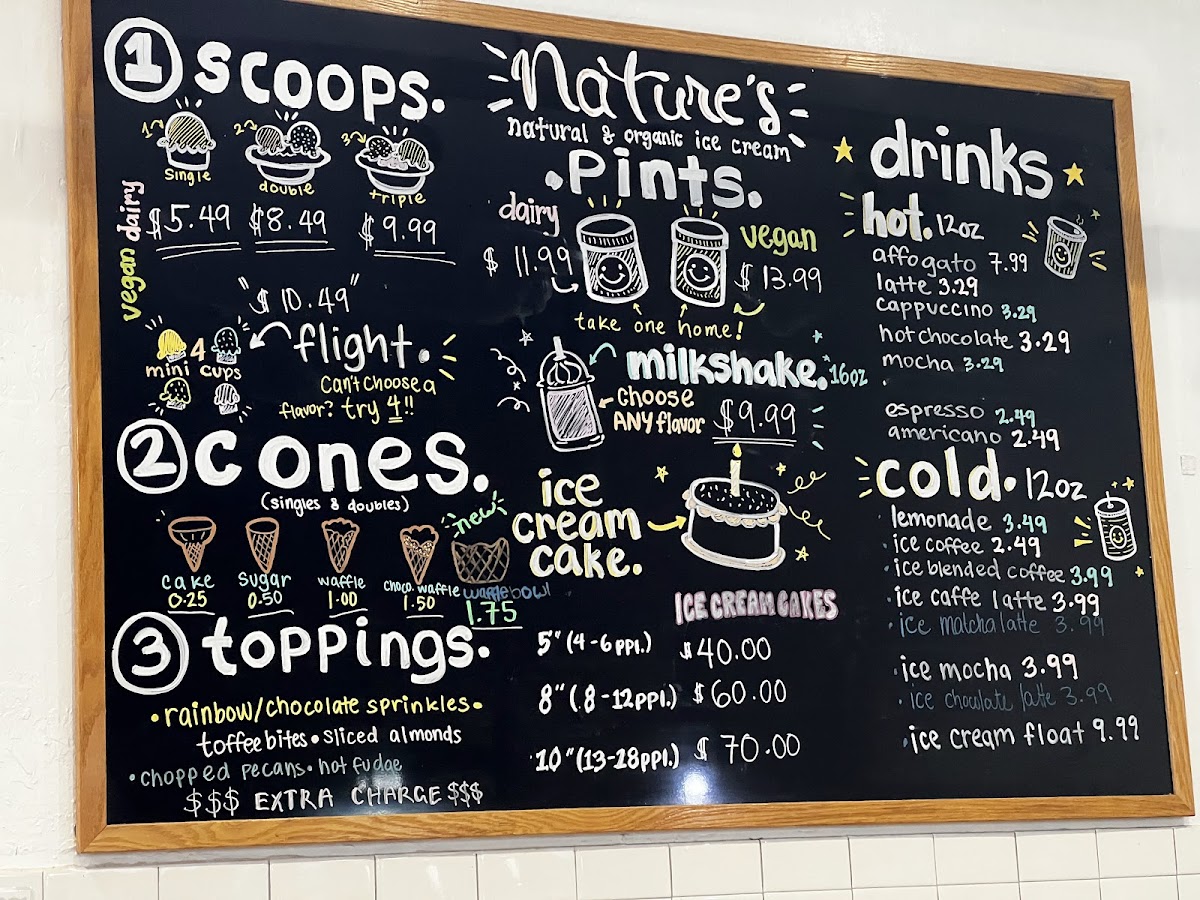 1 scoops.
1 2 3
single double triple
vegan dairy
$5.49 $8.49 $9.99
"$10.49"
flight.
4
mini cups
Can't choose a
flavor? try 4!!
2 cones.
(singles & doubles)
new
cake sugar waffle choco. waffle waffle bowl
0.25 0.50 1.00 1.50 1.75
3 toppings.
• rainbow/chocolate sprinkles •
toffee bites • sliced almonds
• chopped pecans • hot fudge
$$$ EXTRA CHARGE $$$
Nature's
natural & organic ice cream
.pints.
dairy vegan
$11.99 $13.99
take one home!
milkshake. 16oz
choose
ANY flavor $9.99
ice
cream
cake.
ICE CREAM CAKES
5" (4-6 ppl.) $40.00
8" (8-12ppl.) $60.00
10" (13-28ppl.) $70.00
drinks
hot. 12oz
affogato 7.99
latte 3.29
cappuccino 3.29
hot chocolate 3.29
mocha 3.29
espresso 2.49
americano 2.49
cold. 12oz
lemonade 3.49
ice coffee 2.49
ice blended coffee 3.99
ice caffe latte 3.99
ice matcha latte 3.99
ice mocha 3.99
ice chocolate latte 3.99
ice cream float 9.99